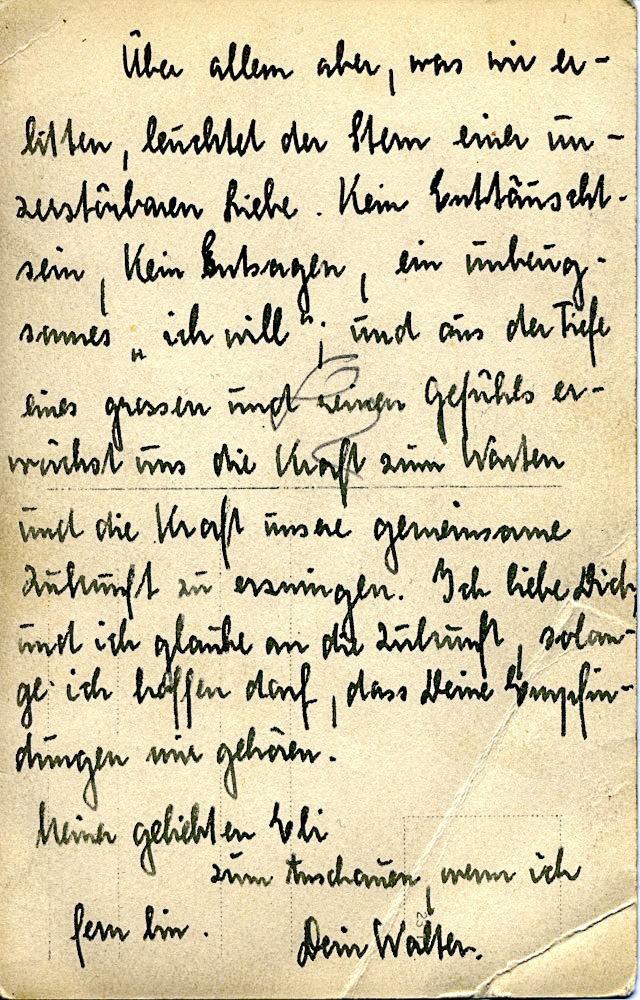 Über allem aber, was wir er-
litten, leuchtet der Stern einer un-
zerstörbaren Liebe. Kein Enttäuscht-
sein, Kein Entsagen, ein unbeug-
sames „ich will“; und aus der Tiefe
eines grossen und reinen Gefühls er-
wächst uns die Kraft zum Warten
und die Kraft unsere gemeinsame
Zukunft zu erzwingen. Ich liebe Dich
und ich glaube an die Zukunft, solan-
ge ich hoffen darf, dass Deine Empfin-
dungen mir gehören.
Meiner geliebten Eli
zum Anschauen, wenn ich
fern bin.
Dein Walter.